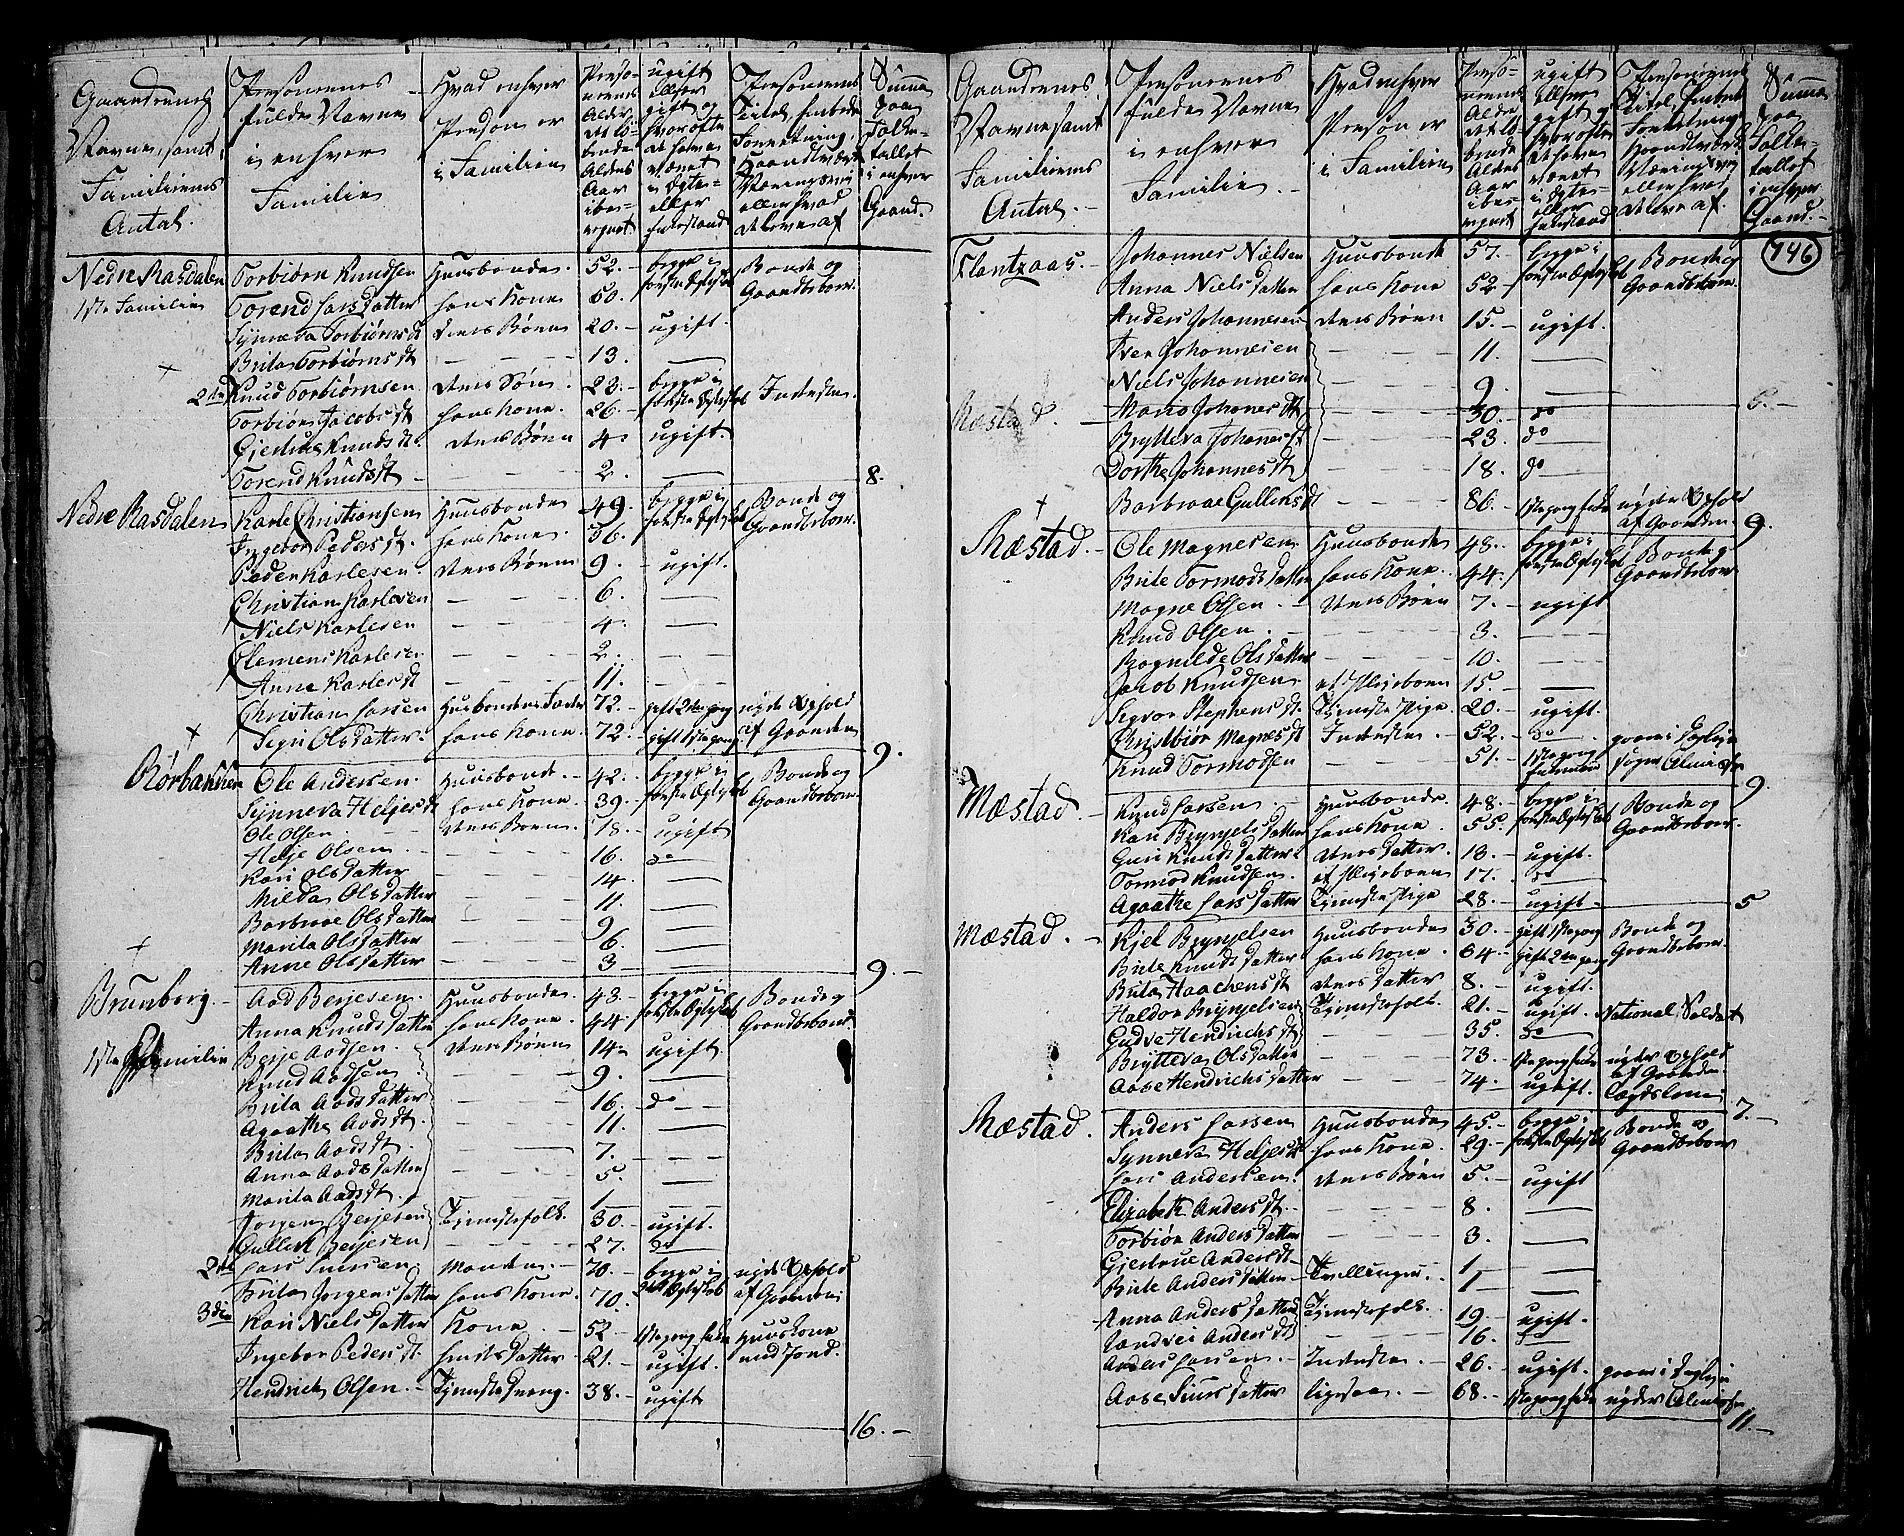 Gaardernes Navne, samt Familiernes Antal.
Personernes fulde Navne i enhver Familie
Hvad enhver Person er i Familien
Personernes Alder det løbende Alders Aar iberegnet
ugift eller gift og hvor ofte de have været i Ægteskab eller Enkestand
Personernes Titel, Embede, Forretning, Haandværk, Næringsvei eller hvad de leve af
Summa paa Folketallet i enhver Gaard.
Nedre Rasdalen Torbiørn Knudsen Huusbonde. 52. begge i første Ægteskab Bonde og Gaardbeboer.
1ste Familie Torend Larsdatter hans Kone 60.
Synneva Torbiørnsdt deres Børn 20. ugift.
Brita Torbiørnsdt 13.
2den Knud Torbiørnsen deres Søn. 23. begge i første Ægteskab Inderste.
Torbiør Jacobsdt hans Kone. 26.
Giertrue Knudsdt. deres Børn 4. ugift.
Torend Knudsdt 2.
8.
Nedre Rasdalen Karle Christiansen Huusbonde 49. begge i første Ægteskab Bonde og Gaardbeboer.
Ingebor Pedersdt. hans Kone. 36.
Peder Karlesen. deres Børn 9. ugift.
Christian Karlesen 6.
Niels Karlesen 4.
Clemens Karlesen 2.
Anne Karlesdt 11.
Christian Larsen Husbondens Fader 72. gift 2den gang nyde Ophold af Gaarden
Segri Olsdatter. hans Kone. 72. gift 1ste gang
9.
Rørbakken Ole Andersen. Huusbonde. 42. begge i første Ægteskab Bonde og Gaardbeboer.
Synneva Heljesdt hans Kone. 39.
Ole Olsen. deres Børn 18. ugift
Helje Olsen 16. do
Kari Olsdatter 14.
Milda Olsdatter 11.
Barbroe Olsdatter 9.
Marita Olsdatter 6.
Anne Olsdatter 3
9.
Brunborg. Aad Berjesen. Huusbonde 43. begge i første Ægteskab Bonde og Gaardbeboer
Anna Knudsdatter hans Kone. 44.
1ste Familie Berje Aadsen. deres Børn 14. ugift
Knud Aadsen. 9.
Brita Aadsdatter 16. do
Agaathe Aadsdt. 11.
Brita Aadsdt. 7.
Anna Aadsdatter 5.
Marita Aadsdt. 1
Jørgen Berjesen Tjenestefolk. 30. ugift.
Gullick Berjesen 27. do
2den Lars Iversen Manden. 70. begge i 2det Ægteskab nyde Ophold af Gaarden
Brita Jørgensdatter hans Kone. 70.
3die Kari Nielsdatter Kone. 52 1ste gang Enke Huuskone med Jord.
Ingebor Pedersdt. hendes Datter 21. ugift.
Hendrich Olsen. Tjenestedreng. 38. ugift
16.
Gaardernes Navne samt Familiernes Antal.
Personernes fulde Navne i enhver Familie.
Hvad enhver Person er i Familien
Personernes Alder det løbende Alders Aar iberegnet
ugift eller gift og hvor ofte de have været i Ægteskab eller Enkestand
Personernes Titel, Embede Forretning, Haandværk Næringsvei eller hvad de leve af.
Summa paa Folketallet i enhver Gaard.
746
Flantzaas. Johannes Nielsen Huusbonde 57. begge i første Ægteskab Bonde og Gaardbeboer.
Anna Nielsdatter hans Kone 52
Anders Johannesen deres Børn 15. ugift.
Iver Johannesen 11
Niels Johannesen 9.
Mæstad. Mario Johanesdt 30. do 6.
Brytteva Johannesdt 23. do
Dorthe Johannesdt 18. do
Barbroe Gulleksdt 86. 1ste gang Enke nyder Ophold af Gaarden
9.
Mæstad. Ole Magnesen Huusbonde 48. begge i første Ægteskab Bonde og Gaardbeboer.
Brite Tormodsdatter hans Kone. 44.
Magne Olsen. deres Børn 7. ugift
Knud Olsen. 3.
Bognilde Olsdatter 10.
Jacob Knudsen et Plejebørn 15.
Segvor Stephensdt. Tjeneste Pige 20. ugift.
Christbiør Magnesdt Inderste 52. do
Knud Tormodsen 51. 1ste gang Enkemand
9.
Mæstad. Knud Larsen Huusbonde. 48. begge i første Ægteskab Bonde og Gaardbeboer.
Kari Brynjelsdatter hans Kone. 55.
Guri Knudsdatter deres Datter. 13. ugift.
Tormod Knudsen. et Plejebørn 17. do
Agaathe Larsdatter Tjeneste Pige 28. ugift.
5
Mæstad. Kjel Brynjelsen Huusbonde 30. gift 1ste gang Bonde og Gaardbeboer.
Brite Knudsdatter hans Kone. 64. gift 2den gang
Brita Haachensdt deres Datter 8. ugift.
Haldor Brynjelsen Tjenestefolk. 21. ugift. National Soldat
Gudve Hendrichsdt 35 do
Brytteva Olsdatter 73. 1ste gang Enke nyder Ophold af Gaarden.
Aase Hendrichsdatter 74. ugift. Lægdslem
7.
Mæstad. Anders Larsen Huusbonde 45. begge i første Ægteskab Bonde og Gaardbeboer
Synneva Heljesdt hans Kone. 29.
Lars Andersen. deres Børn 5. ugift
Elizabeth Andersdt. 8.
Torbiør Andersdatter 3.
Gjertrue Andersdt. 1
Brite Andersdatter Tvillinger. 1
Anna Andersdatter Tjenestefolk. 19. ugift.
Randvei Andersdt 16. do
Anders Larsen. Inderste. 26. ugift.
Aase Siursdatter ligesaa. 68. 1ste gang Enke nyder Almisse
11.